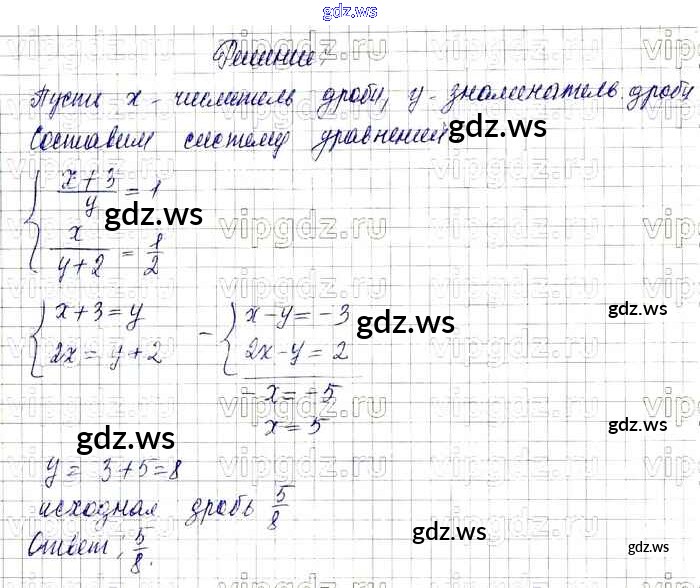 gdz.ws
Решение:
Пусть x - числитель дроби, y - знаменатель дроби
Составим систему уравнений gdz.ws
{ (x+3)/y = 1
x/(y+2) = 1/2
gdz.ws
{ x+3=y
2x=y+2
- { x-y=-3
2x-y=2
-x=-5
x=5
gdz.ws
gdz.ws
gdz.ws
gdz.ws
y = 3+5=8
исходная дробь 5/8
Ответ: 5/8.
gdz.ws
gdz.ws
vipgdz.ru